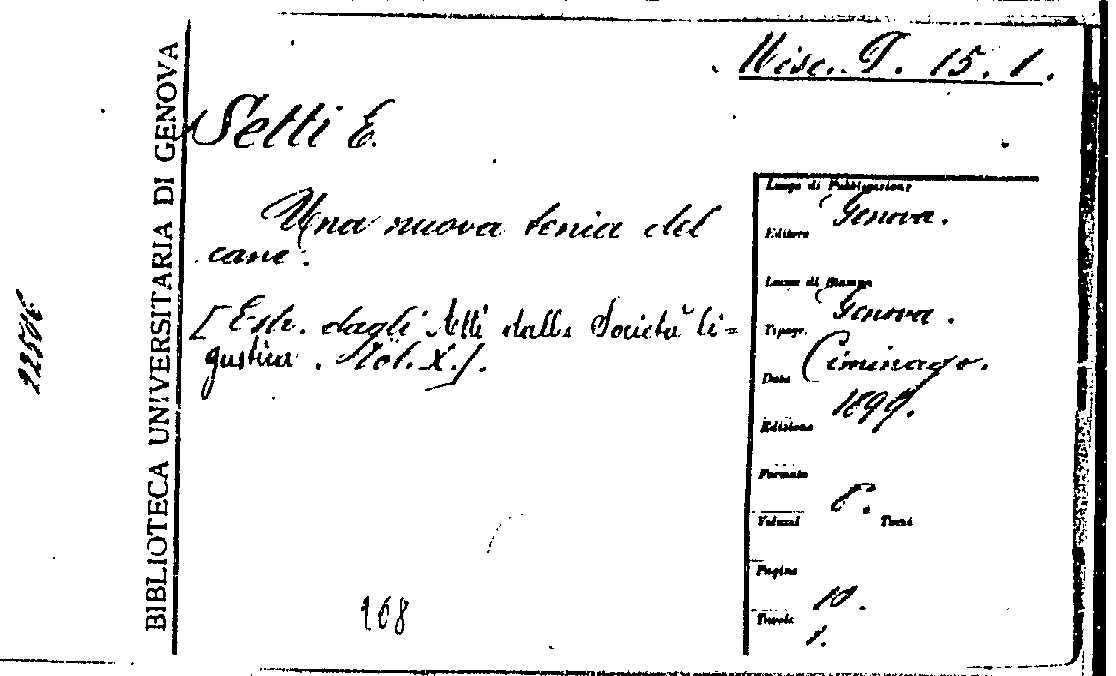 Misc. T. 15. 1.
Setti E.
Una nuova tenia del
cane.
[Estr. dagli Atti della Società li=
gustica. Vol. X.].
168
BIBLIOTECA UNIVERSITARIA DI GENOVA
Luogo di Pubblicazione
Genova.
Editore
Luogo di Stampa
Genova.
Tipogr.
Ciminago.
Data
1899.
Edizione
Formato
8°.
Volumi Tomi
Pagine
10.
Tavole
1.